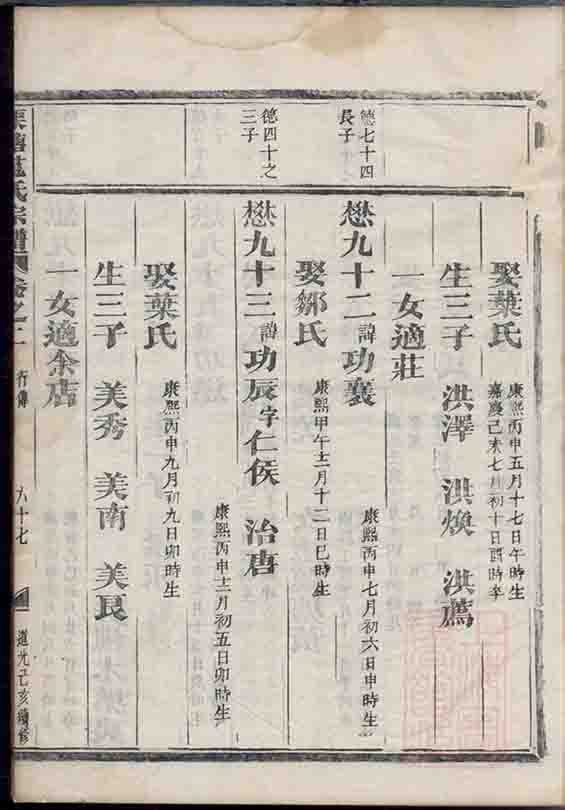 娶葉氏
康熙丙申五月十七日午時生
嘉慶己未七月初十日酉時卒
生三子 洪澤 洪煥 洪爲
一女適莊
德七十四
長子
懋九十二諱功襄
康熙丙申七月初六日申時生
娶鄒氏
康熙甲午十二月十二日巳時生
德四十之
三子
懋九十三諱功辰字仁侯 治唐
康熙丙申十二月初五日卯時生
娶葉氏
康熙丙申九月初九日卯時生
生三子 美秀 美南 美良
一女適余店
氏宗譜 卷之二 行傳 六十七 道光己亥續修